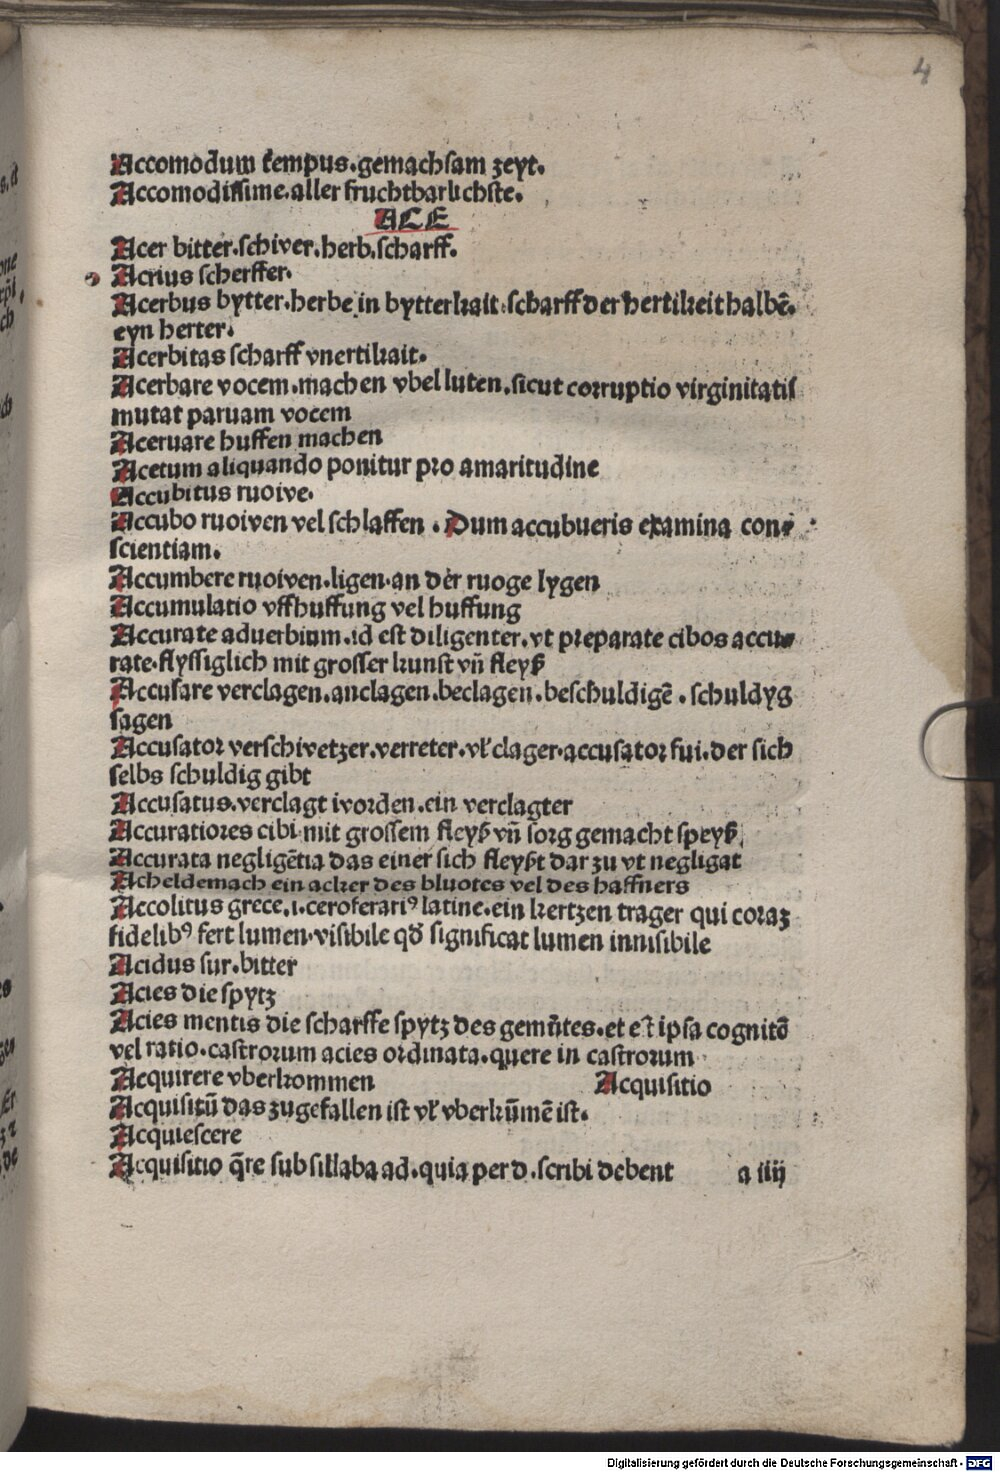 4
Accomodum tempus.gemachsam zeyt.
Accomodissime.aller fruchtbarlichste.
ACE
Acer bitter.schiver.herb.scharff.
Acrius scherffer.
Acerbus bytter.herbe in bytterkait.scharff der hertikeit halbē.
eyn herter.
Acerbitas scharff vnertikait.
Acerbare vocem.machen vbel luten.sicut corruptio virginitatis
mutat paruam vocem
Aceruare huffen machen
Acetum aliquando ponitur pro amaritudine
Accubitus ruoive.
Accubo ruoiven vel schlaffen . Dum accubueris examina con⸗
scientiam.
Accumbere ruoiven.ligen.an der ruoge lygen
Accumulatio vffhuffung vel huffung
Accurate aduerbium.id est diligenter.vt preparate cibos accu⸗
rate.flyssiglich mit grosser kunst vn̄ fleyß
Accusare verclagen.anclagen.beclagen.beschuldigē . schuldyg
sagen
Accusator verschivetzer.verreter.vł clager.accusator sui.der sich
selbs schuldig gibt
Accusatus.verclagt ivorden.ein verclagter
Accuratiores cibi mit grossem fleyß vn̄ sorg gemacht speyß
Accurata negligētia das einer sich fleyßt dar zu vt negligat
Acheldemach ein acker des bluotes vel des haffners
Accolitus grece.i.ceroferariꝰ latine.ein kertzen trager qui coraz
fidelibꝰ fert lumen.visibile qd̄ significat lumen inuisibile
Acidus sur.bitter
Acies die spytz
Acies mentis die scharffe spytz des gemūtes.et ē ipsa cognitō
vel ratio.castrorum acies ordinata.quere in castrorum
Acquirere vberkommen Acquisitio
Acquisitū das zugefallen ist vł vberkūmē ist.
Acquiescere
Acquisitio q̄re sub sillaba ad.quia per d.scribi debent a iiij
Digitalisierung gefördert durch die Deutsche Forschungsgemeinschaft - DFG